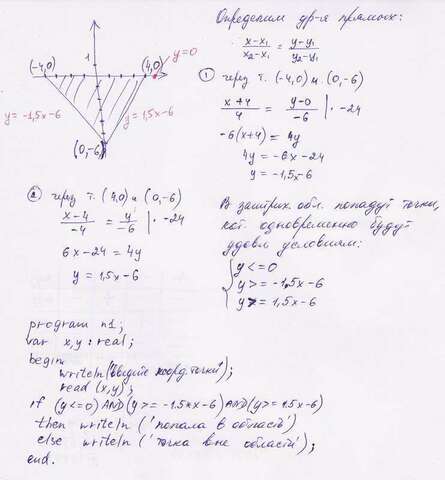 1
(-4,0)
(4,0)
y=0
y=-1,5x-6
y=1,5x-6
(0,-6)
Определим ур-я прямых:
x-x₁/x₂-x₁ = y-y₁/y₂-y₁
① через т. (-4,0) и (0,-6)
x+4/4 = y-0/-6 | · -24
-6(x+4) = 4y
4y = -6x-24
y = -1,5x-6
② через т. (4,0) и (0,-6)
x-4/-4 = y/-6 | · -24
6x-24 = 4y
y = 1,5x-6
В заштрих. обл. попадут точки,
кот. одновременно будут
удовл. условиям:
{ y<=0
y>= -1,5x-6
y>= 1,5x-6
program n1;
var x,y : real;
begin
writeln('введите коорд. точки');
read (x,y);
if (y<=0) AND (y>= -1.5*x-6) AND (y>= 1.5x-6)
then writeln ('попала в область')
else writeln ('точка вне области');
end.